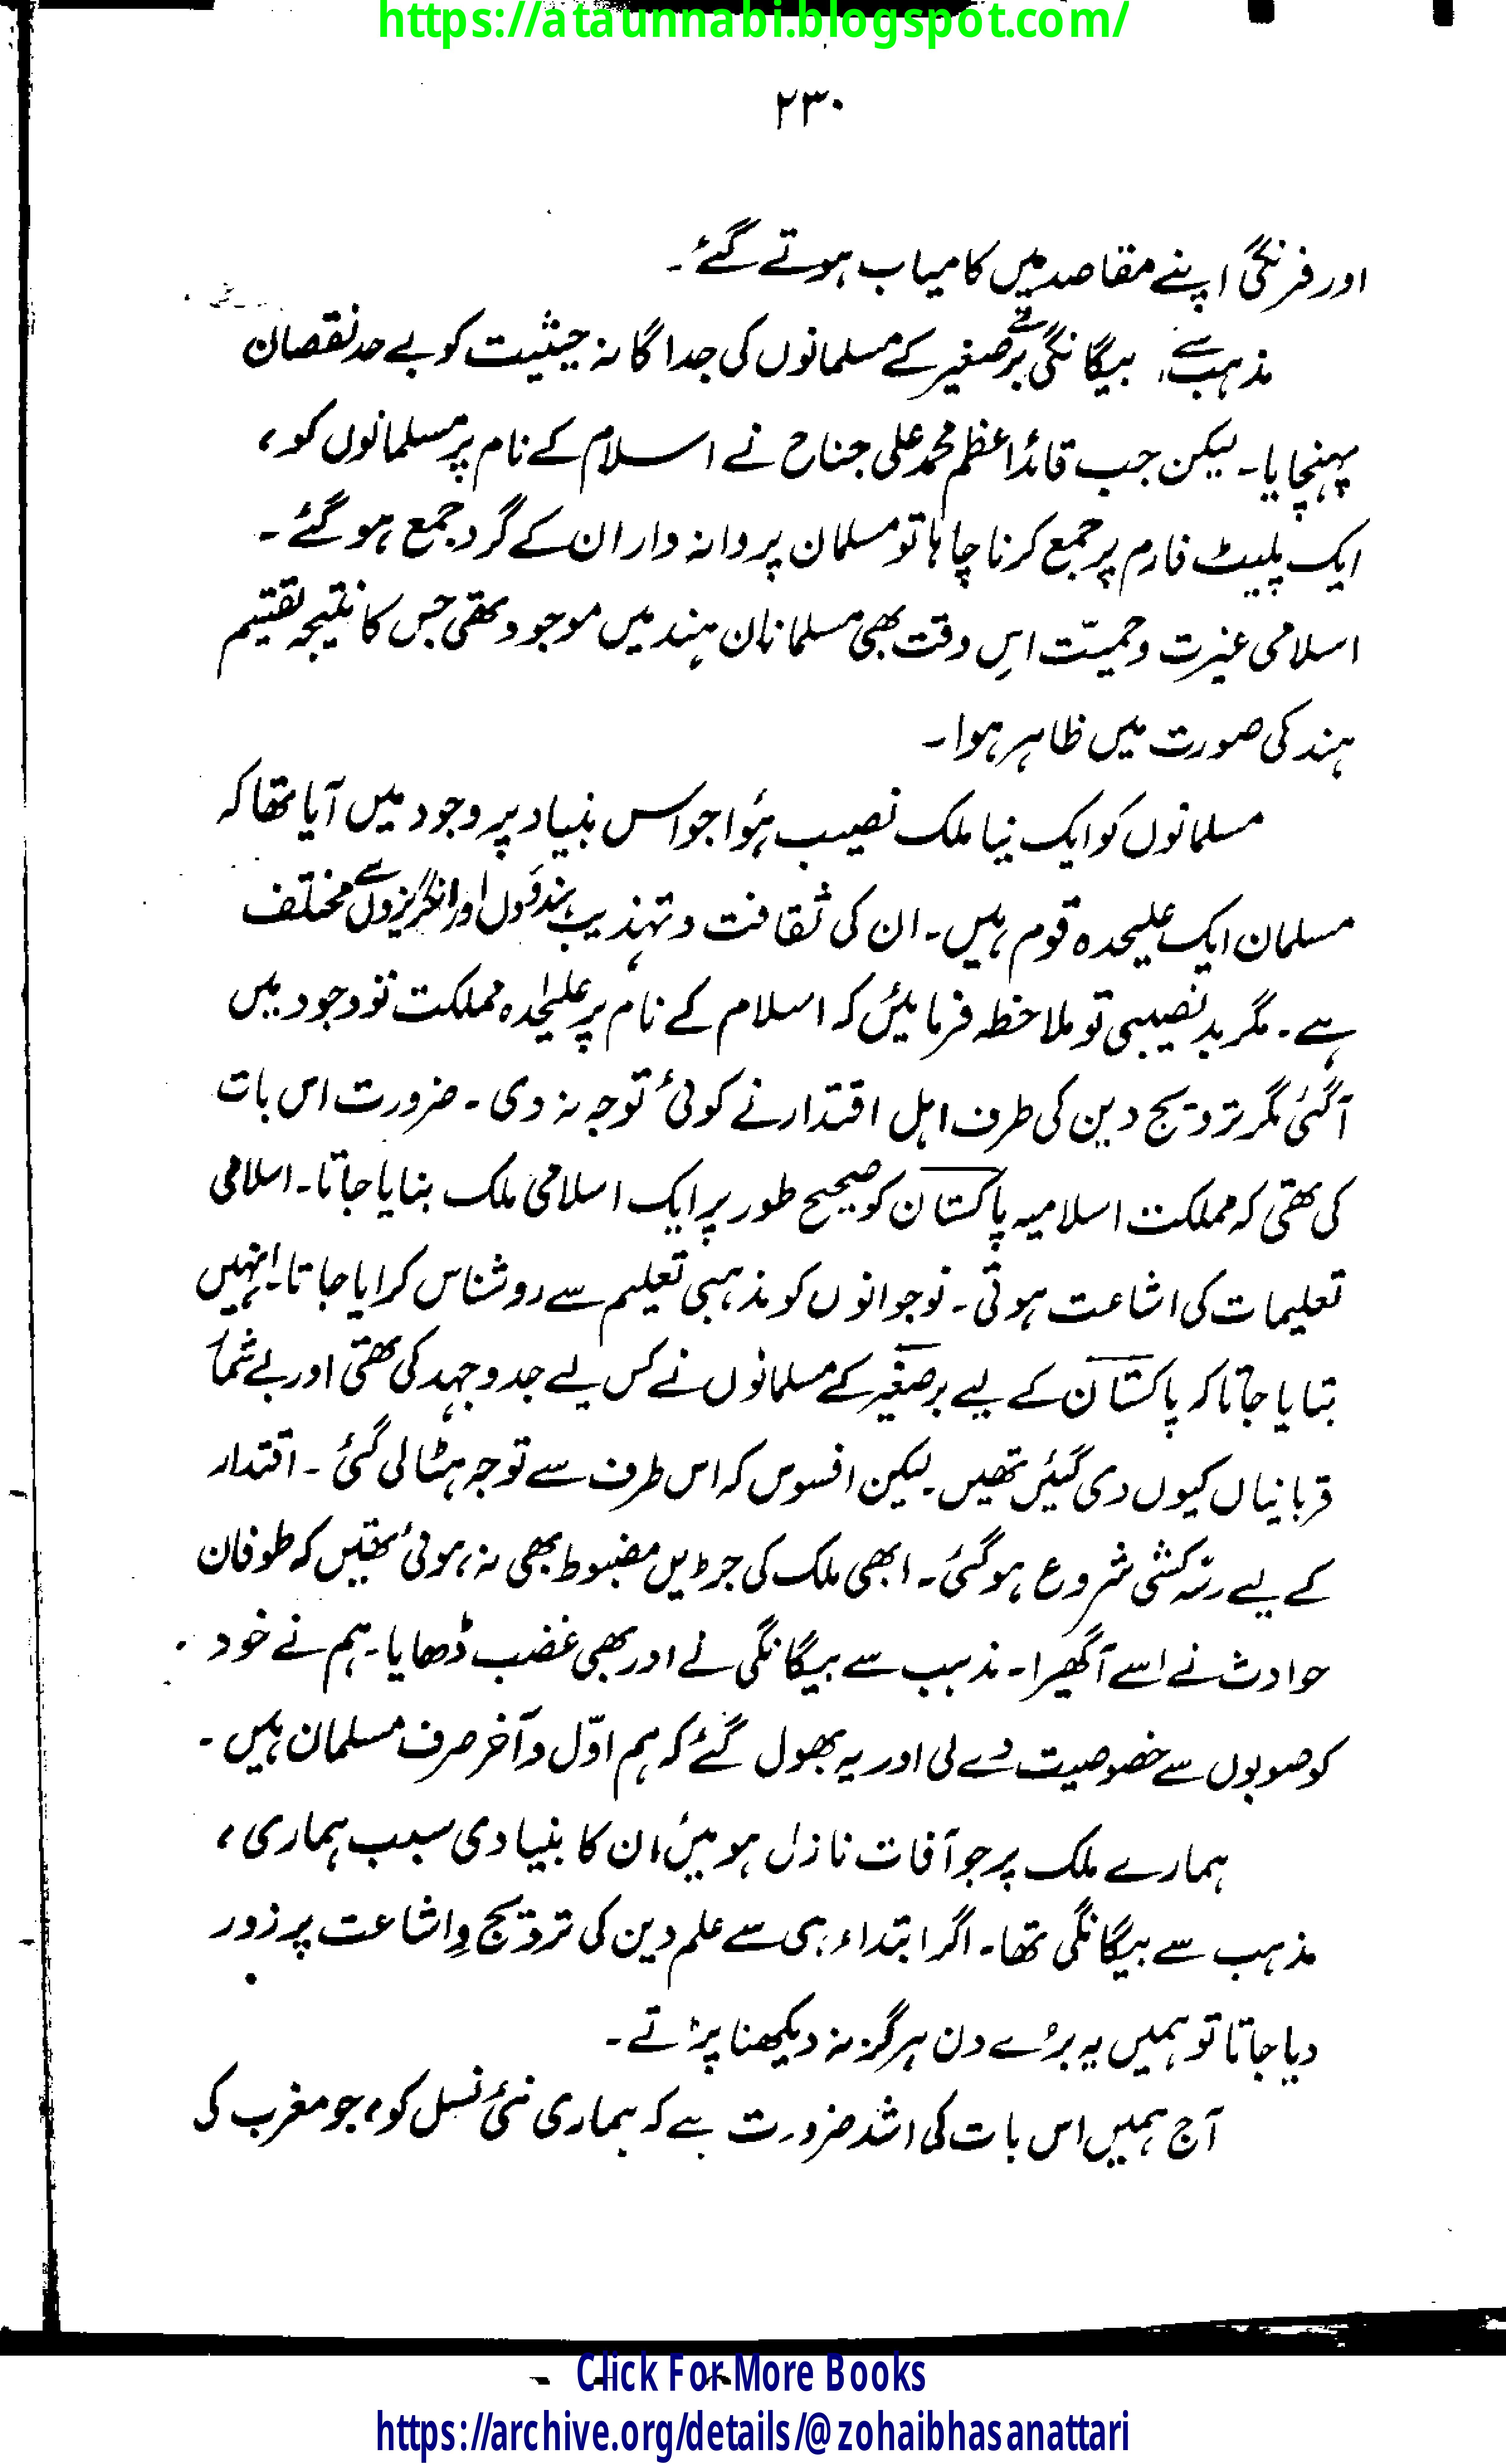 https://ataunnabi.blogspot.com/
۲۳۰
اور فرنگی اپنے مقاصد میں کامیاب ہوتے گئے۔
مذہب سے بیگانگی نے برصغیر کے مسلمانوں کی جداگانہ حیثیت کو بے حد نقصان
پہنچایا۔ لیکن جب قائداعظم محمد علی جناح نے اسلام کے نام پر مسلمانوں کو،
ایک پلیٹ فارم پر جمع کرنا چاہا تو مسلمان پروانہ وار ان کے گرد جمع ہو گئے۔
اسلامی غیرت و حمیّت اس وقت بھی مسلمانان ہند میں موجود تھی جس کا نتیجہ تقسیم
ہند کی صورت میں ظاہر ہوا۔
مسلمانوں کو ایک نیا ملک نصیب ہؤا جو اس بنیاد پر وجود میں آیا تھا کہ
مسلمان ایک علیحدہ قوم ہیں۔ ان کی ثقافت و تہذیب ہندوؤں اور انگریزوں سے مختلف
ہے۔ مگر بدنصیبی تو ملاحظہ فرمائیں کہ اسلام کے نام پر علیٰحدہ مملکت تو وجود میں
آگئی مگر ترویج دین کی طرف اہل اقتدار نے کوئی توجہ نہ دی۔ ضرورت اس بات
کی تھی کہ مملکت اسلامیہ پاکستان کو صحیح طور پر ایک اسلامی ملک بنایا جاتا۔ اسلامی
تعلیمات کی اشاعت ہوتی۔ نوجوانوں کو مذہبی تعلیم سے روشناس کرایا جاتا۔ انہیں
بتایا جاتا کہ پاکستان کے لیے برصغیر کے مسلمانوں نے کس لیے جدوجہد کی تھی اور بے شمار
قربانیاں کیوں دی گئیں تھیں۔ لیکن افسوس کہ اس طرف سے توجہ ہٹا لی گئی۔ اقتدار
کے لیے رسّہ کشی شروع ہو گئی۔ ابھی ملک کی جڑیں مضبوط بھی نہ ہوئی تھیں کہ طوفان
حوادث نے اسے آگھیرا۔ مذہب سے بیگانگی نے اور بھی غضب ڈھایا۔ ہم نے خود
کو صوبوں سے خصوصیت دے لی اور یہ بھول گئے کہ ہم اوّل و آخر صرف مسلمان ہیں۔
ہمارے ملک پر جو آفات نازل ہوئیں ان کا بنیادی سبب ہماری،
مذہب سے بیگانگی تھا۔ اگر ابتداء ہی سے علم دین کی ترویج و اشاعت پر زور
دیا جاتا تو ہمیں یہ برُے دن ہرگز نہ دیکھنا پڑتے۔
آج ہمیں اس بات کی اشد ضرورت ہے کہ ہماری نئی نسل کو، جو مغرب کی
Click For More Books
https://archive.org/details/@zohaibhasanattari